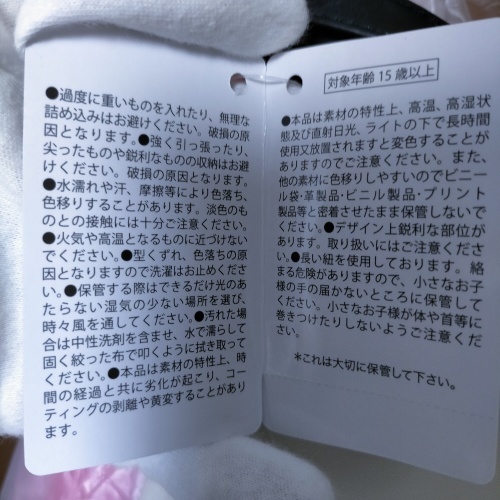 ●過度に重いものを入れたり、無理な
詰め込みはお避けください。破損の原
因となります。●強く引っ張ったり、
尖ったものや鋭利なものの収納はお避
けください。破損の原因となります。
●水濡れや汗、摩擦等により色落ち、
色移りすることがあります。淡色のも
のとの接触には十分ご注意ください。
●火気や高温となるものに近づけない
でください。●型くずれ、色落ちの原
因となりますので洗濯はお止めくださ
い。●保管する際はできるだけ光のあ
たらない湿気の少ない場所を選び、
時々風を通してください。●汚れた場
合は中性洗剤を含ませ、水で濡らして
固く絞った布で叩くように拭き取って
ください。●本品は素材の特性上、時
間の経過と共に劣化が起こり、コー
ティングの剥離や黄変することがあり
ます。
対象年齢 15 歳以上
●本品は素材の特性上、高温、高湿状
態及び直射日光、ライトの下で長時間
使用又放置されますと変色することが
ありますのでご注意ください。また、
他の素材に色移りしやすいのでビニー
ル袋・革製品・ビニル製品・プリント
製品等と密着させたまま保管しないで
ください。●デザイン上鋭利な部位が
あります。取り扱いにはご注意くださ
い。●長い紐を使用しております。絡
まる危険がありますので、小さなお子
様の手の届かないところに保管して
ください。小さなお子様が体や首等に
巻きつけたりしないようご注意くだ
さい。
＊これは大切に保管して下さい。